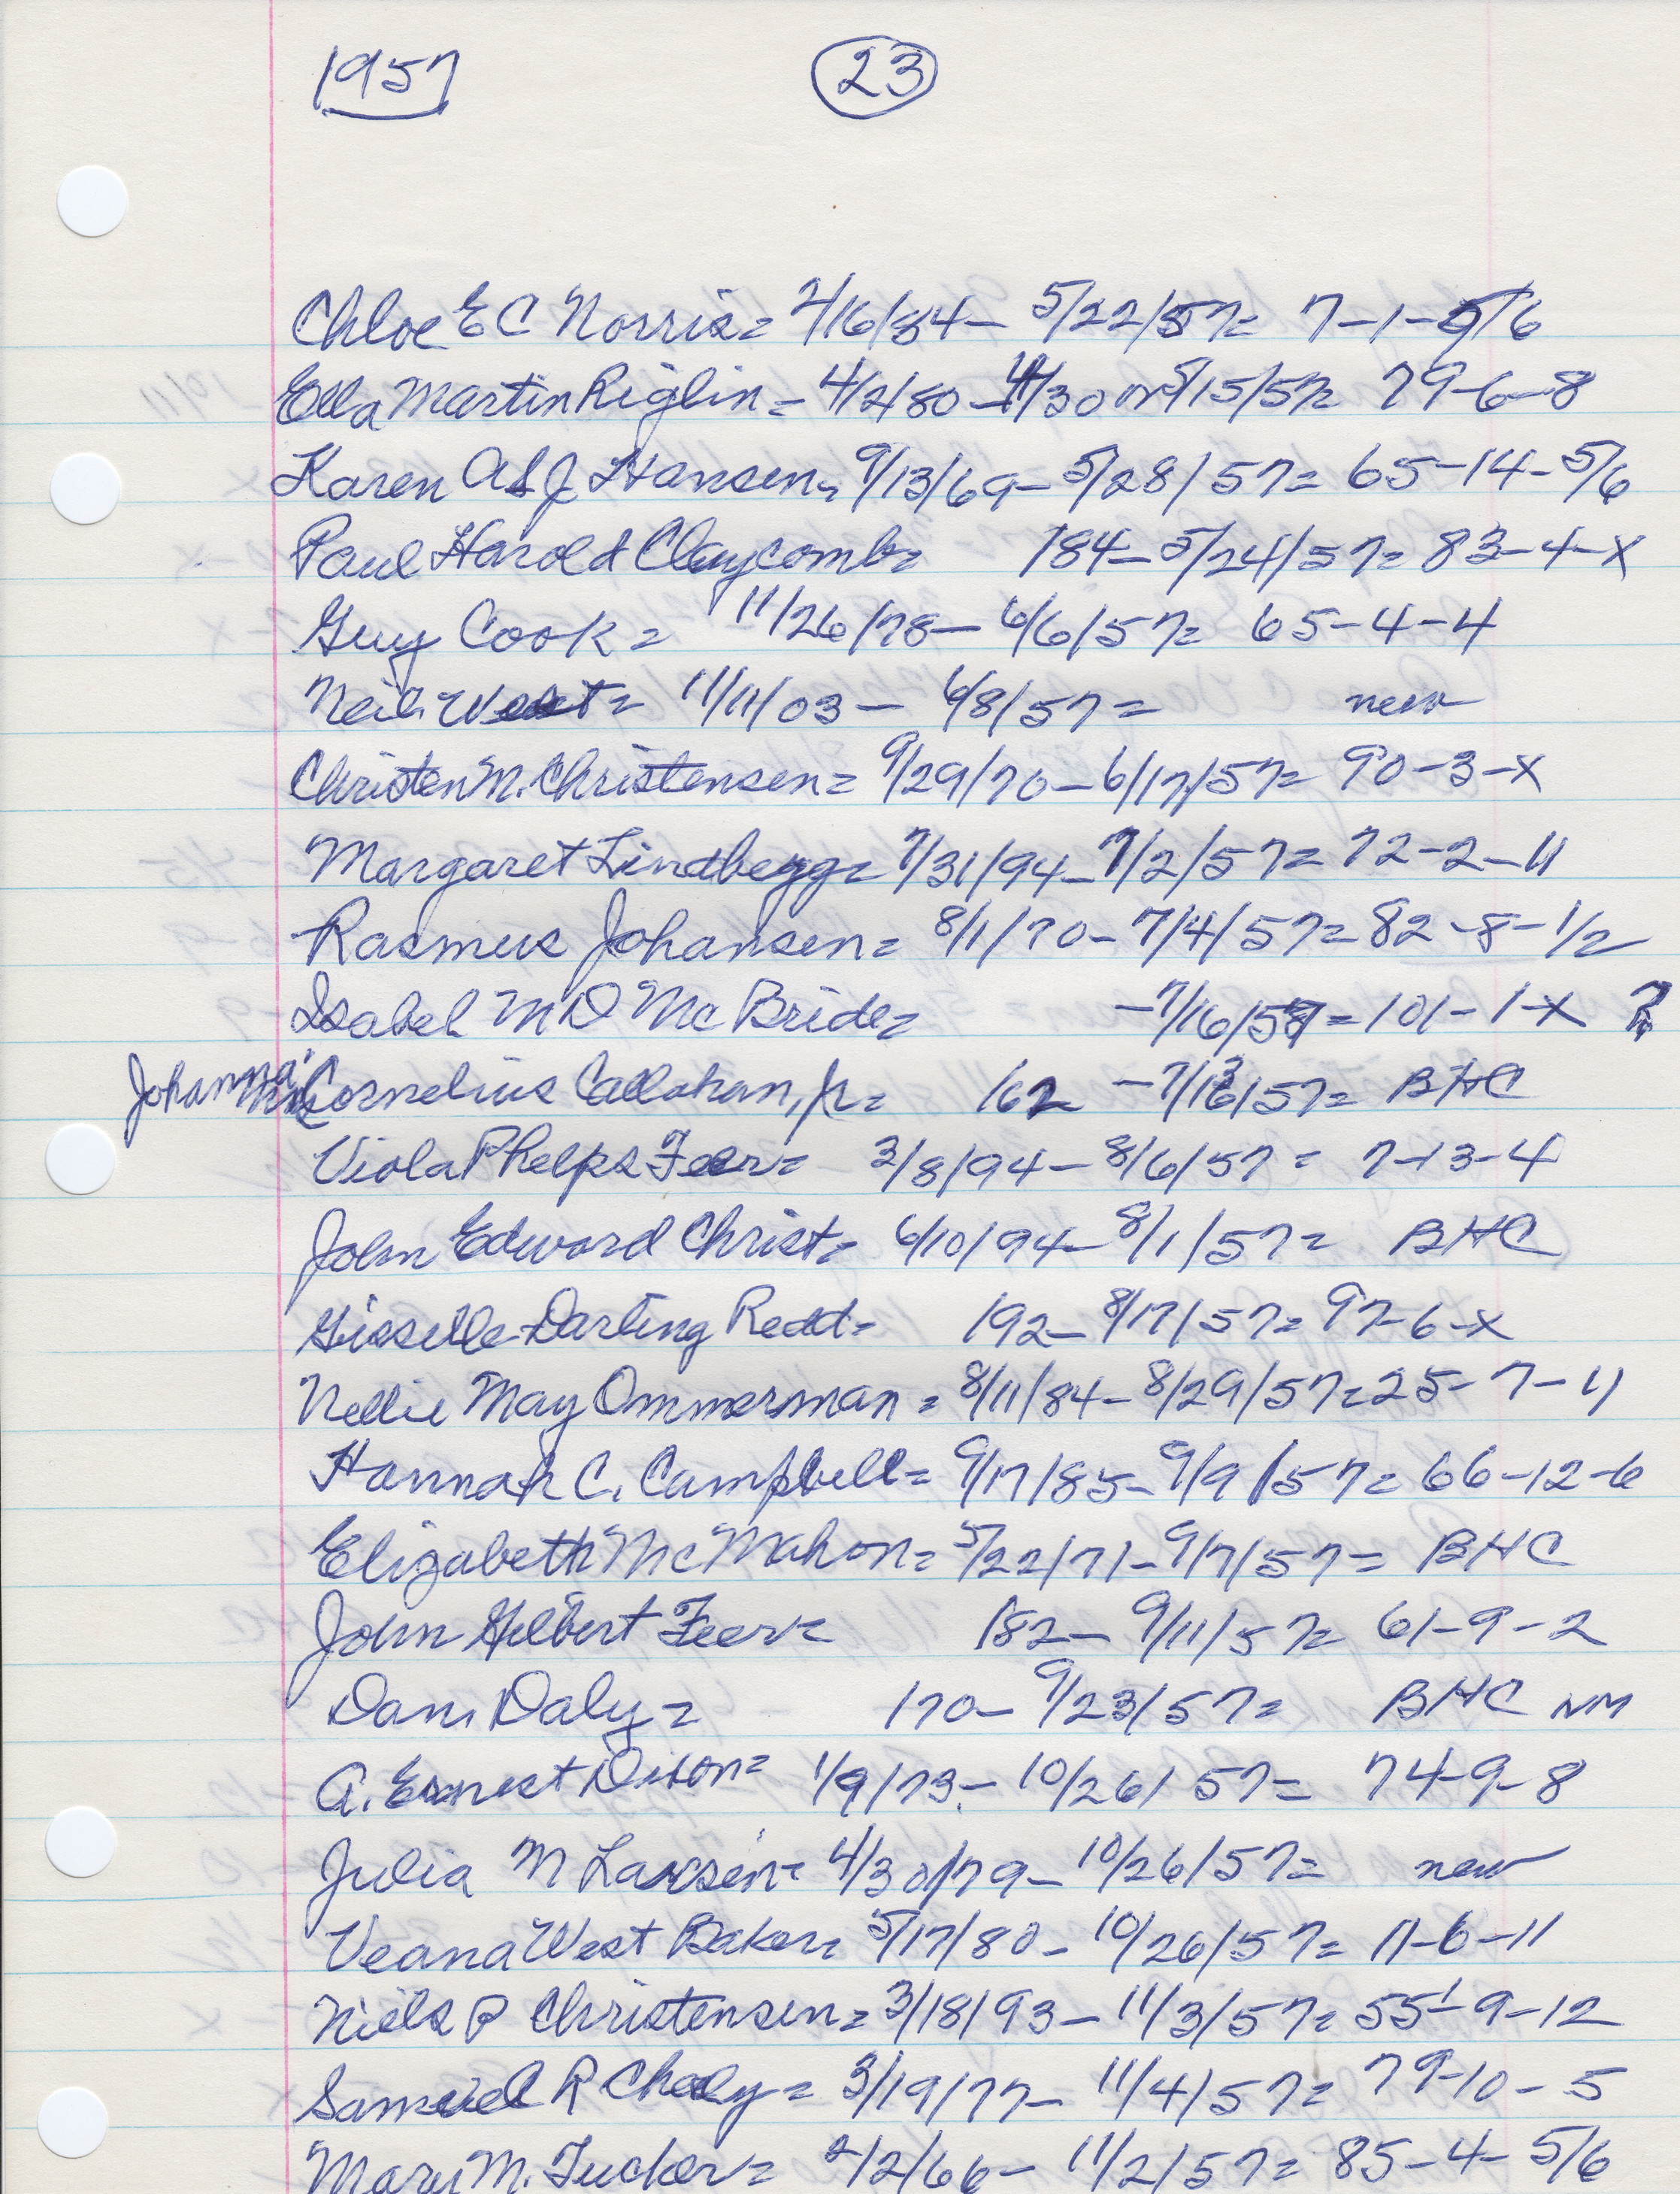 1957 23
Chloe E C Norris = 2/16/84 - 5/22/57 = 7-1-5/6
Ella Martin Riglin = 4/2/80 - 4/30 or 5/15/57 = 79-6-8
Karen A S J Hansen = 9/13/69 - 5/28/57 = 65-14-5/6
Paul Harold Claycomb = 184 - 5/24/57 = 83-4-X
Guy Cook = 11/26/78 - 6/6/57 = 65-4-4
Neil West = 11/11/03 - 6/8/57 = new
Christen M. Christensen = 9/29/70 - 6/17/57 = 90-3-X
Margaret Lindbegg = 7/31/94 - 7/2/57 = 72-2-11
Rasmus Johansen = 8/1/70 - 7/4/57 = 82-8-1/2
Isabel M D McBride = - 7/16/57 = 101-1-X ?
Johanna Cornelius Callahan, Jr = 162 - 7/13/57 = BHC
Viola Phelps Feer = 3/8/94 - 8/6/57 = 7-13-4
John Edward Christ = 6/10/94 - 8/1/57 = BHC
Gisselle Darling Redd = 192 - 8/17/57 = 97-6-X
Nellie May Ommerman = 8/11/84 - 8/29/57 = 25-7-11
Hannah C. Campbell = 9/17/85 - 9/9/57 = 66-12-6
Elizabeth McMahon = 5/22/71 - 9/7/57 = BHC
John Gilbert Feer = 182 - 9/11/57 = 61-9-2
Dan Daly = 170 - 9/23/57 = BHC NM
A. Ernest Dixon = 1/9/73 - 10/26/57 = 74-9-8
Julia M Larsen = 4/30/79 - 10/26/57 = new
Veana West Baker = 5/17/80 - 10/26/57 = 11-6-11
Niels P Christensen = 3/18/93 - 11/3/57 = 55-9-12
Samuel R = 3/19/77 - 11/4/57 = 79-10-5
Mary M. Tucker = 2/2/66 - 11/2/57 = 85-4-5/6